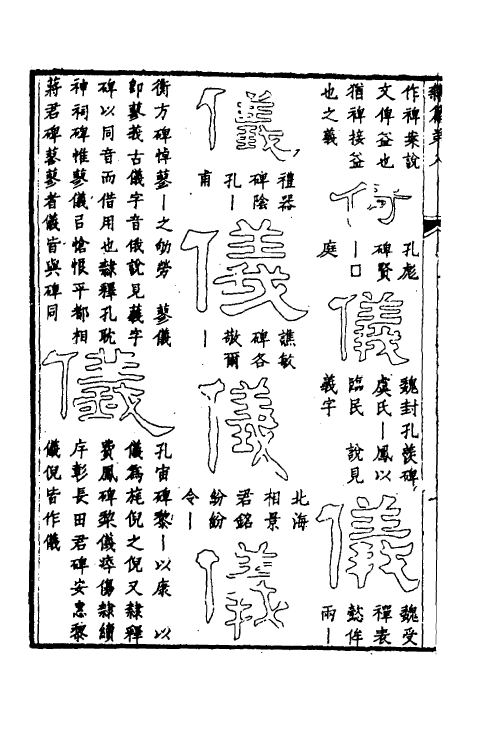 作裨案說
文俾益也
猶裨接益
也之義
何
孔彪
碑賢
丨口
庭
儀
魏封孔羨碑
虞氏丨鳳以
臨民 說見
義字
儀
魏受
禪表
懿侔
兩丨
儀
禮器
碑陰
孔丨
甫
儀
譙敏
碑各
敬爾
丨
儀
北海
相景
君銘
紛紛
令丨
儀
衡方碑悼蓼丨之劬勞 蓼儀
即蓼莪古儀字音俄說見義字
碑以同音而借用也隸釋孔耽
神祠碑惟蓼儀㠯愴恨平都相
蔣君碑蓼蓼者儀皆與碑同
儀
孔宙碑黎丨以康 以
儀為旄倪之倪又隸釋
費鳳碑黎儀瘁傷隸續
斥彰長田君碑安惠黎
儀倪皆作儀